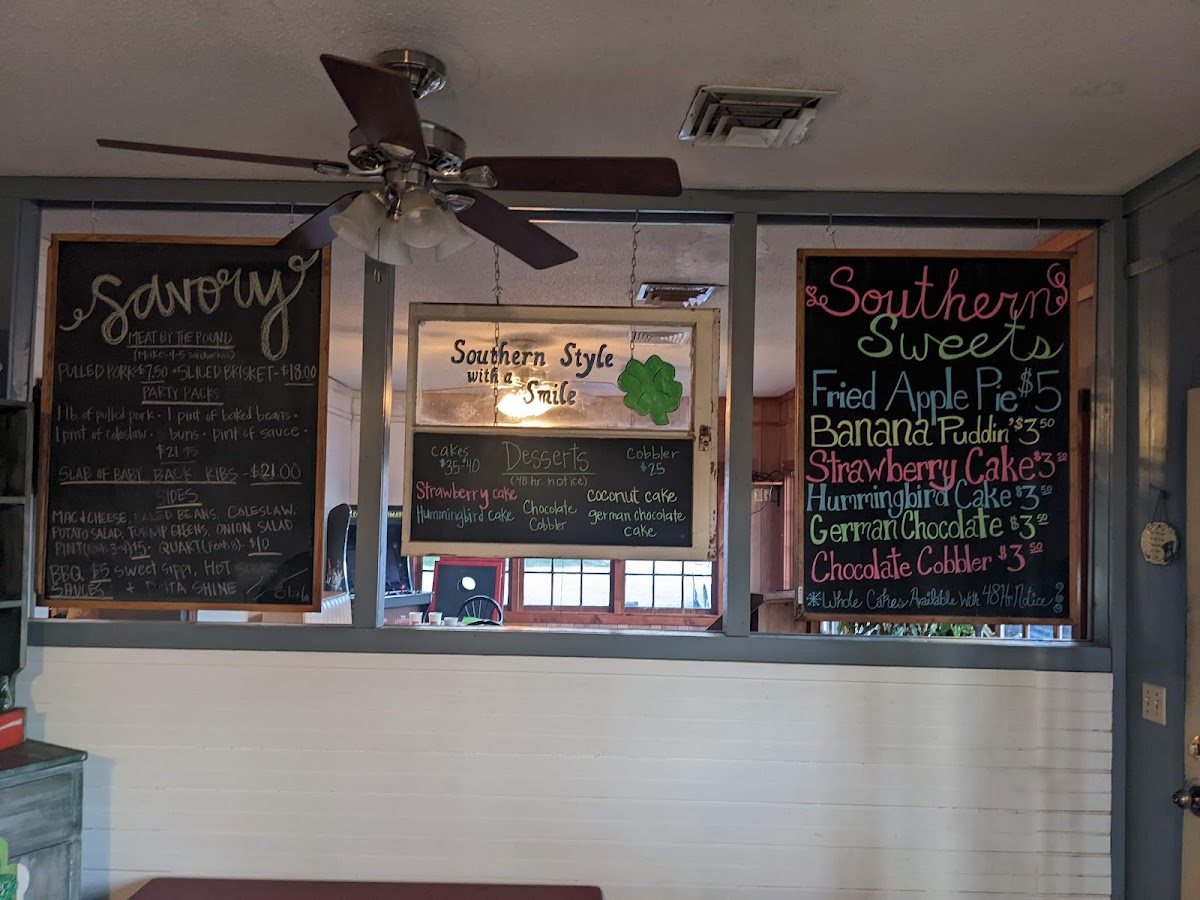 Savory
MEAT BY THE POUND
(Makes 4-5 sandwiches)
PULLED PORK-$7.50 • SLICED BRISKET-$18.00
PARTY PACKS
1 lb of pulled pork • 1 pint of baked beans •
1 pint of coleslaw • buns • pint of sauce •
$21.95
SLAB OF BABY BACK RIBS - $21.00
SIDES
MAC & CHEESE, BAKED BEANS, COLESLAW,
POTATO SALAD, TURNIP GREENS, ONION SALAD
PINT $5 • QUART $10
BBQ $5 SWEET SIPPI, HOT
SAUCES & DELTA SHINE
Southern Style
with a
Smile
Desserts
(48 hr. notice)
cakes
$35-$40
Cobbler
$25
Strawberry cake
Hummingbird Cake
Chocolate
Cobbler
coconut cake
german chocolate
cake
Southern
Sweets
Fried Apple Pie $5
Banana Puddin' $3.50
Strawberry Cake $3.50
Hummingbird Cake $3.50
German Chocolate $3.50
Chocolate Cobbler $3.50
*Whole Cakes Available With 48 Hr. Notice